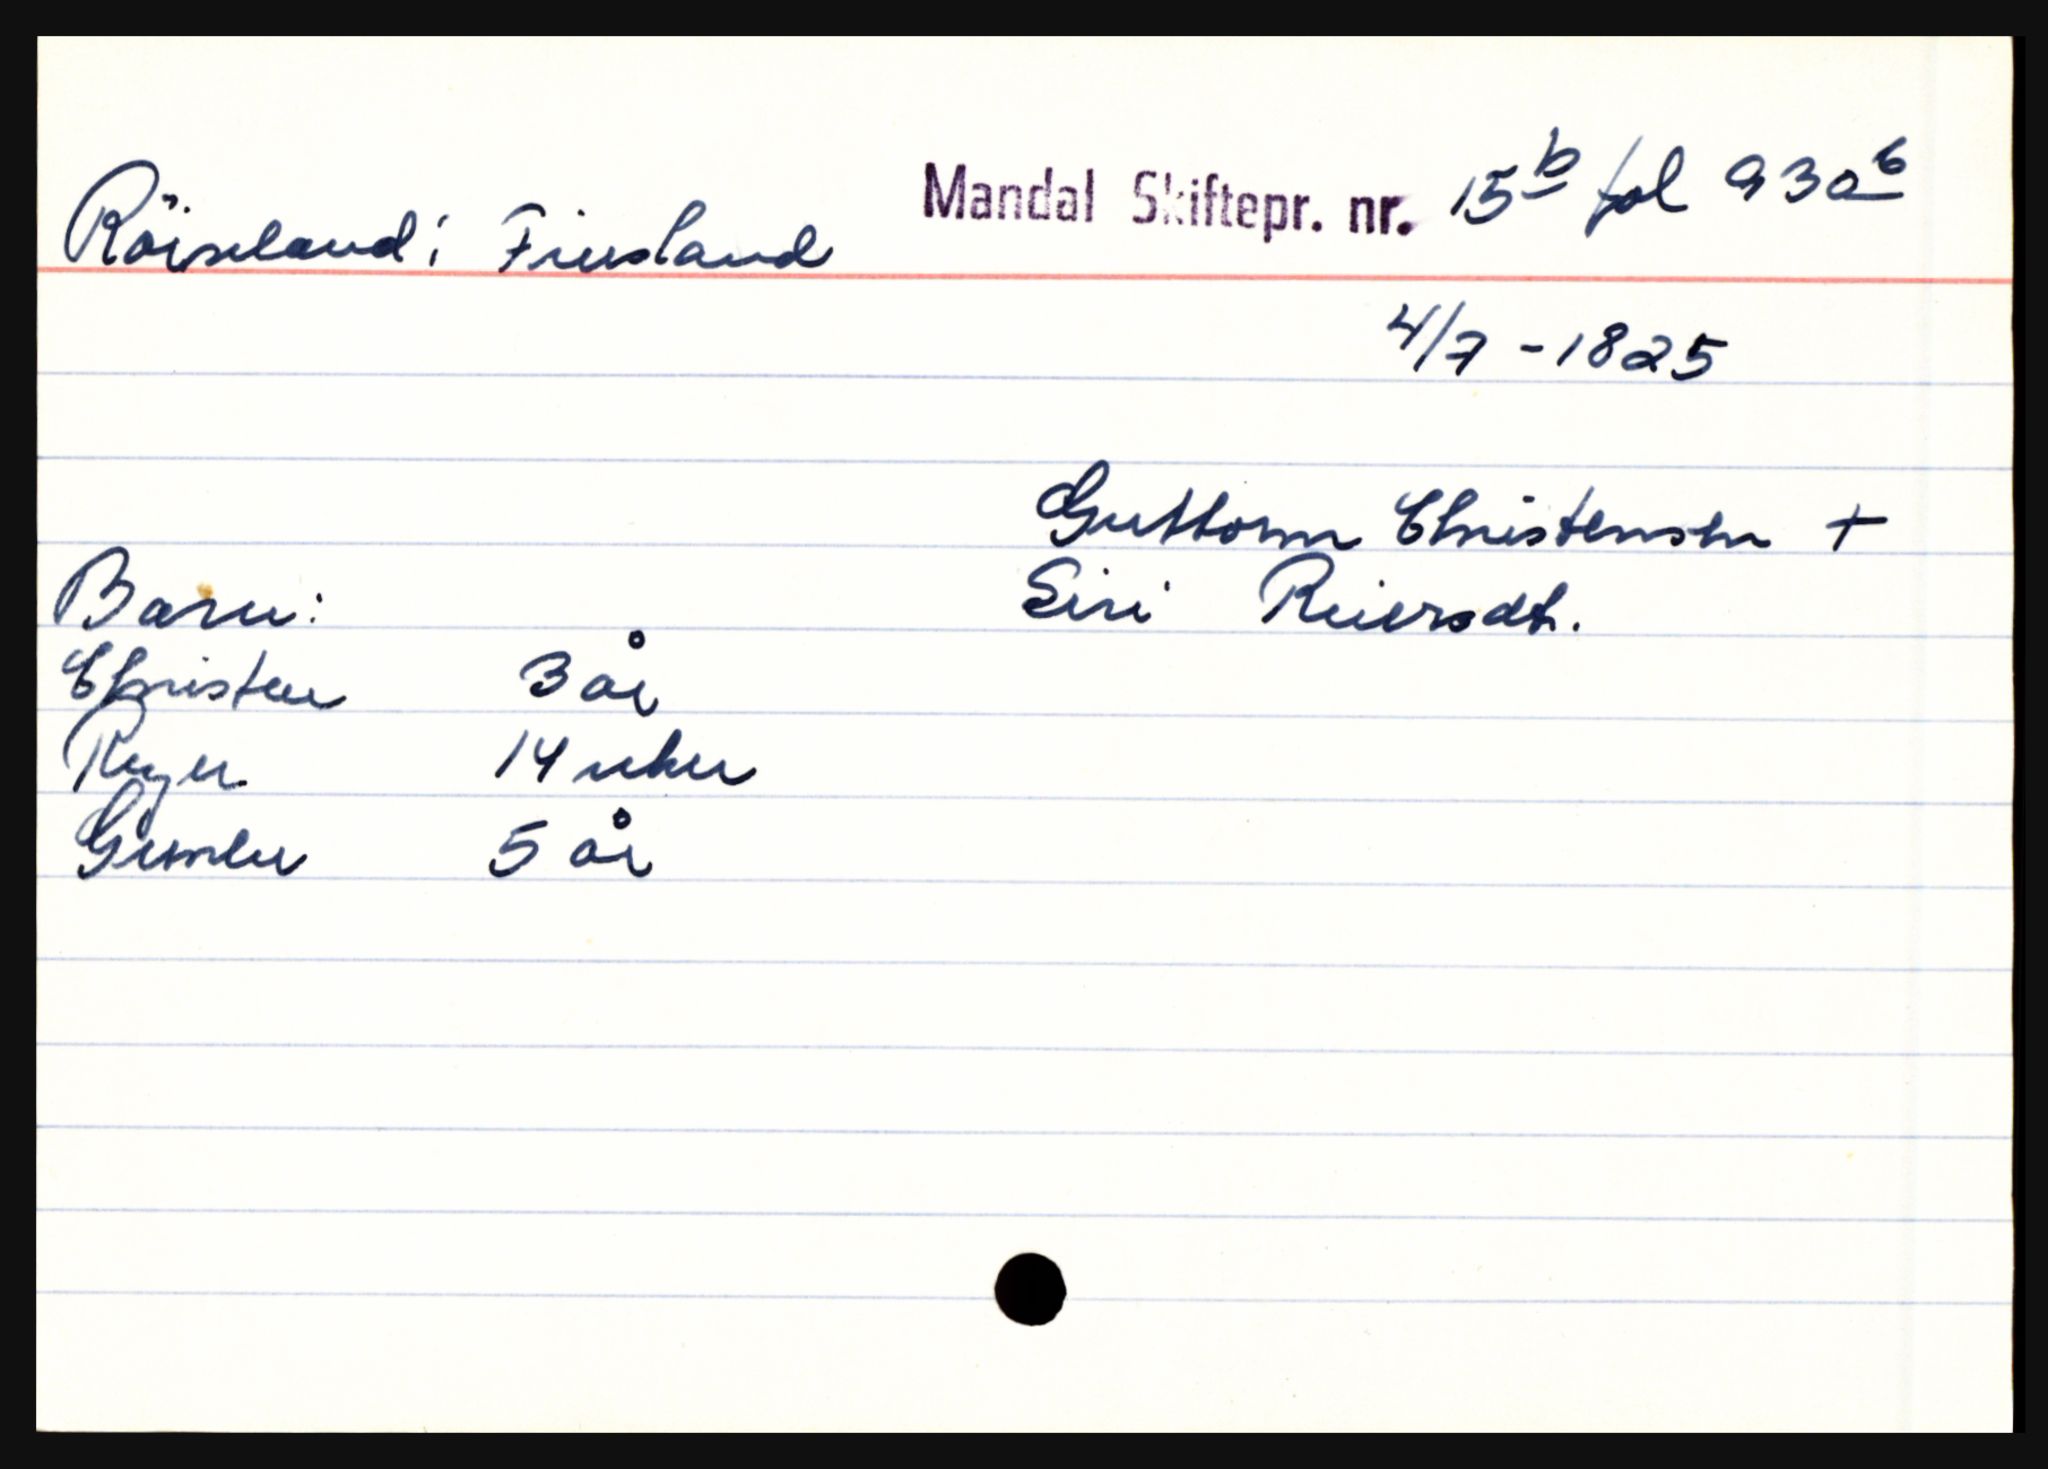 Röiseland i Finsland Mandal Skiftepr. nr. 15b fol 930b
4/7 - 1825
Guttorm Christensen +
Siri Reiersdt.
Barn:
Christen 3 år
Reyer 14 uker
Gunder 5 år